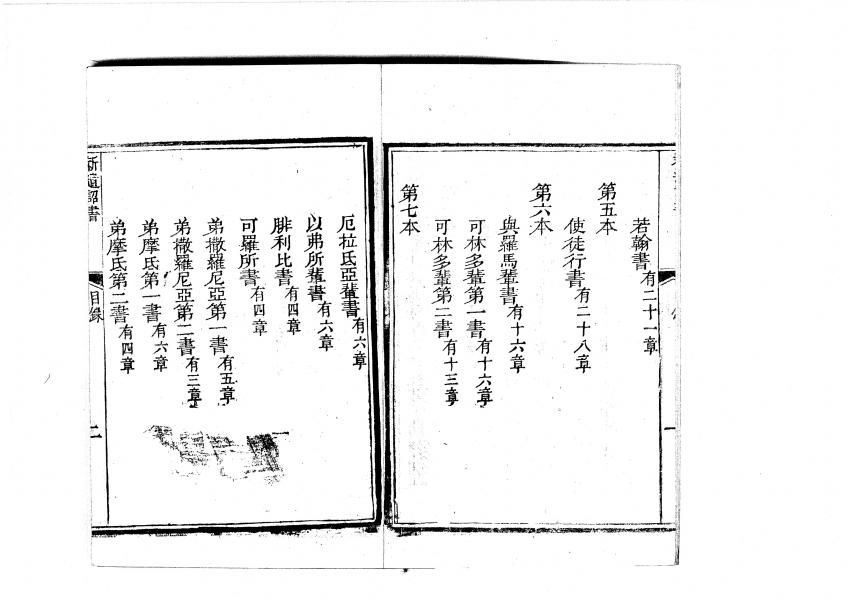 若翰書有二十一章
第五本
使徒行書有二十八章
第六本
與羅馬輩書有十六章
可林多輩第一書有十六章
可林多輩第二書有十三章
第七本
厄拉氐亞輩書有六章
以弗所輩書有六章
腓利比書有四章
可羅所書有四章
弟撒羅尼亞第一書有五章
弟撒羅尼亞第二書有三章
弟摩氐第一書有六章
弟摩氐第二書有四章
新遺詔書 目錄 二